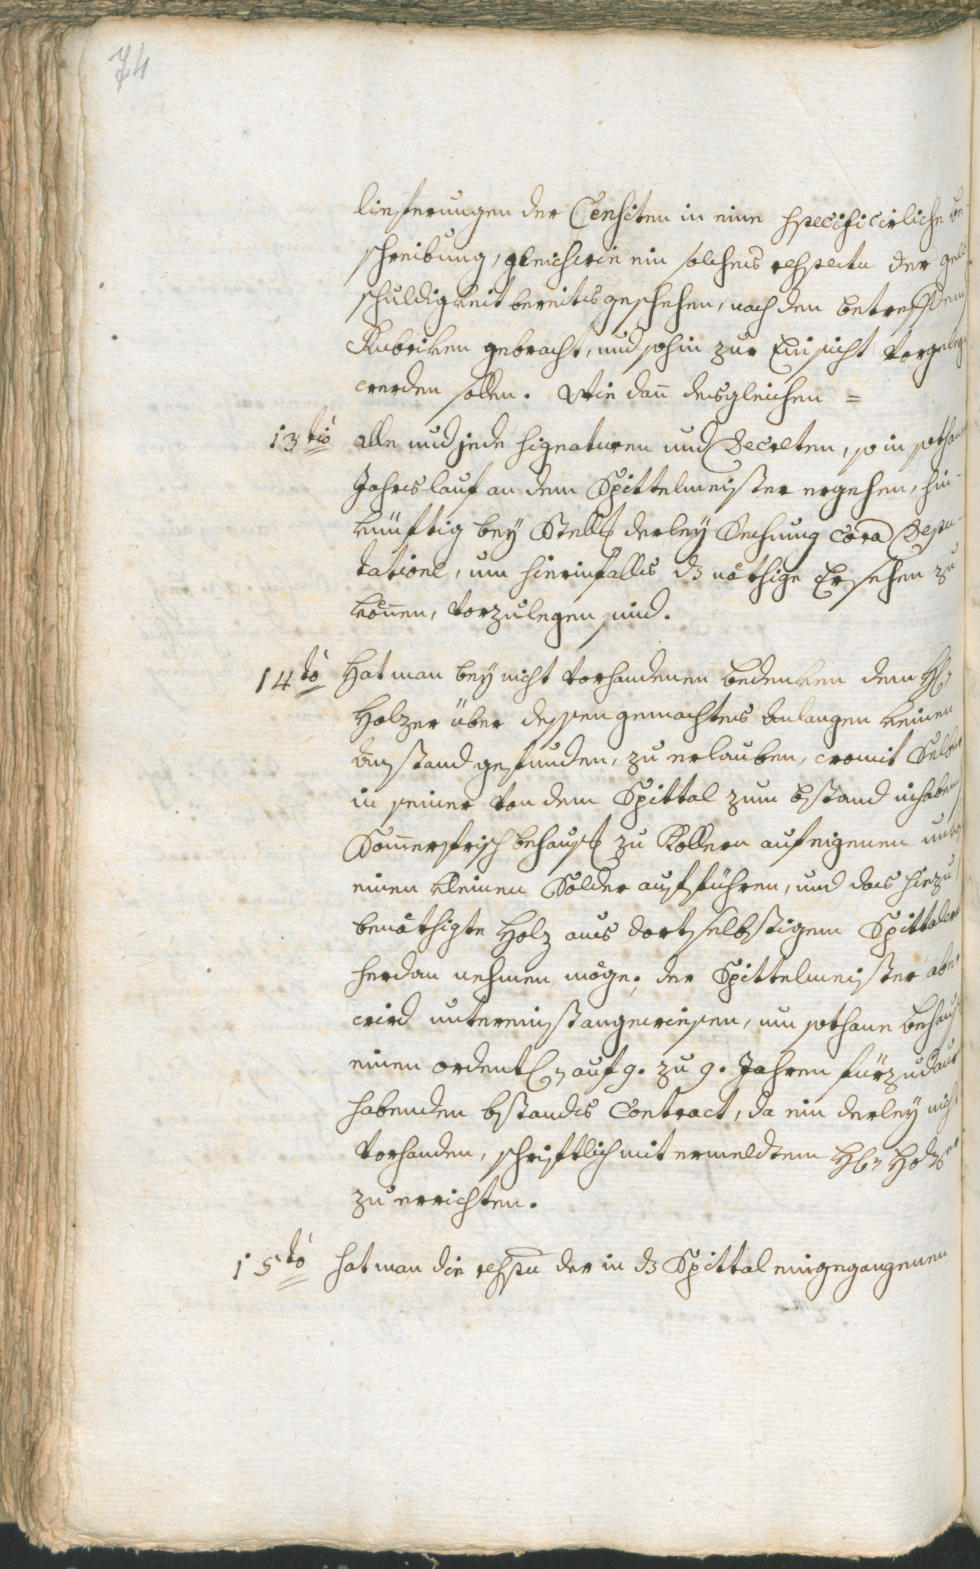 74
lieferungen der Censiten in eine specificirliche be-
schreibung, gleichwie ein solches respectu der geld
schuldigkeit bereits geschehen, nach den betreffenden
Rubriken gebracht, und sohin zur Einsicht vorgelegt
werden sollen. Wie dan̄ desgleichen =
13tiò alle und jede Signaturen und Decreten, so in sothanen
Jahrslauf an dem Spittelmeister ergehen, hin-
künftig bey derley Rechnung corā Depu-
tatione, um hierinfalls dz nöthige Ersehen zu
kön̄en, vorzulegen sind.
14tò Hat man bey nicht vorhandenen bedenken dem Hr
Holzer über dessen gemachtes Anlangen keinen
Anstand gefunden, zu erlauben, womit Selber
in seiner von dem Spittal zum bstand inhabenden
Som̄erfrisch behaus zu Kollern auf eigenen
einen kleinen Sölder aufführen, und das hiezu
benöthigte Holz aus dortselbstigem
herdan nehmen möge; der Spittelmeister aber
wird untereinst angewiesen, um sothane behaus
einen ordentl: auf 9. zu 9. Jahren fürzudauren
habenden bstands Contract, da ein derley nicht
vorhanden, schriftlich mit ermeldtem Hr Holzer
zu errichten.
15tò hat man die respu der in dz Spittal eingegangenen